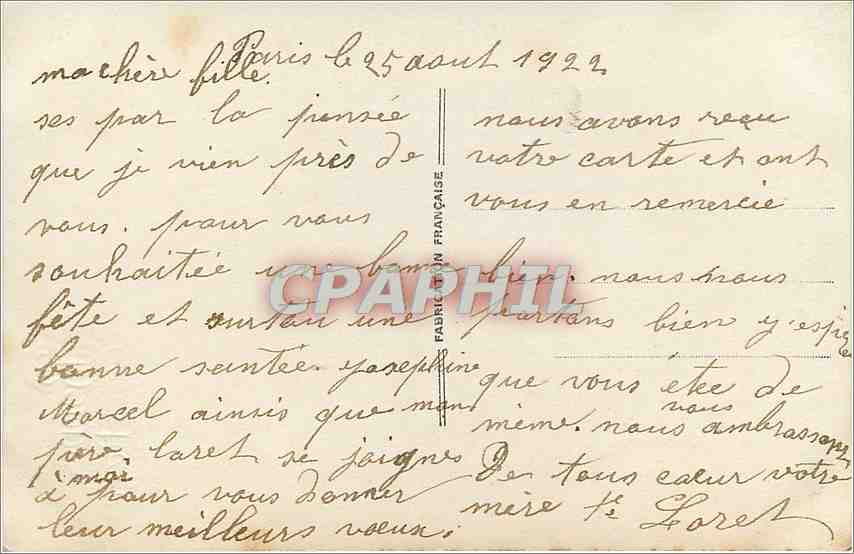 Paris le 25 aout 1922
ma chère fille.
ses par la pensée
que je vien près de
vous. pour vous
souhaitée une bonne
fête et surtou une
bonne santée. Josephine
Marcel ainsis que mon
père. Loret se joignes
à moi pour vous donner
leur meilleurs vœux.
nous avons reçu
votre carte et ont
vous en remercie
bien. nous nous
portons bien j'espère
que vous étee de
même. nous vous ambrassons
De tous cœur votre
mère Loret
FABRICATION FRANÇAISE
CPAPHIL